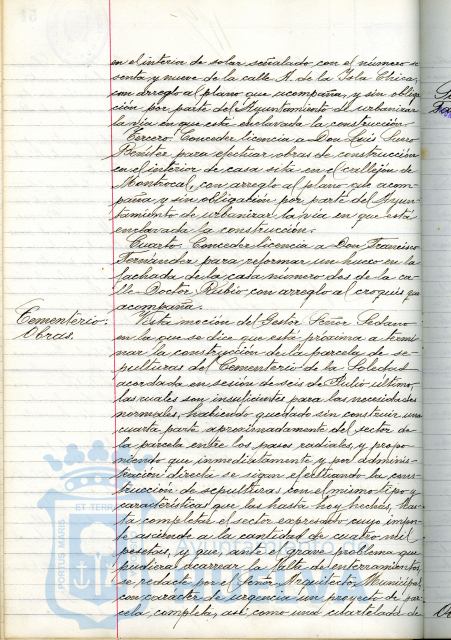 en el interior de solar señalado con el número se
senta y nueve de la calle A. de la Isla Chica,
con arreglo al plano que acompaña, y sin obliga
ción por parte del Ayuntamiento de urbanizar
la vía en que está enclavada la construcción.
Tercero. Conceder licencia a Don Luis
Benítez para efectuar obras de construcción
en el interior de casa sita en el callejón de
Montrocal, con arreglo al plano que acom-
paña y sin obligación por parte del Ayun-
tamiento de urbanizar la vía en que está
enclavada la construcción.
Cuarto. Conceder licencia a Don Francisco
Fernández para reformar un hueco en la
fachada de la casa número dos de la ca-
lle Doctor Rubio con arreglo al croquis que
acompaña.
Cementerio:
Obras.
Vista moción del Gestor Señor Sedano
en la que se dice que está próxima a termi
nar la construcción de la parcela de se-
pulturas del Cementerio de la Soledad
acordada en sesión de seis de Julio último,
las cuales son insuficientes para las necesidades
normales, habiendo quedado sin construir una
cuarta parte aproximadamente del sector de
la parcela entre los pasos radiales, y propo-
niendo que inmediatamente y por adminis-
tración directa se sigan efectuando la cons-
trucción de sepulturas con el mismo tipo y
características que las hasta hoy hechas, has-
ta completar el sector expresado cuyo impor-
te asciende a la cantidad de cuatro mil
pesetas, y que, ante el grave problema que
pudiera acarrear la falta de enterramientos
se redacte por el Señor Arquitecto Municipal
con carácter de urgencia un proyecto de par-
cela completa, así como una cuartelada de
PORTUS MARIS
ET TERRAE
Ayuntamiento de